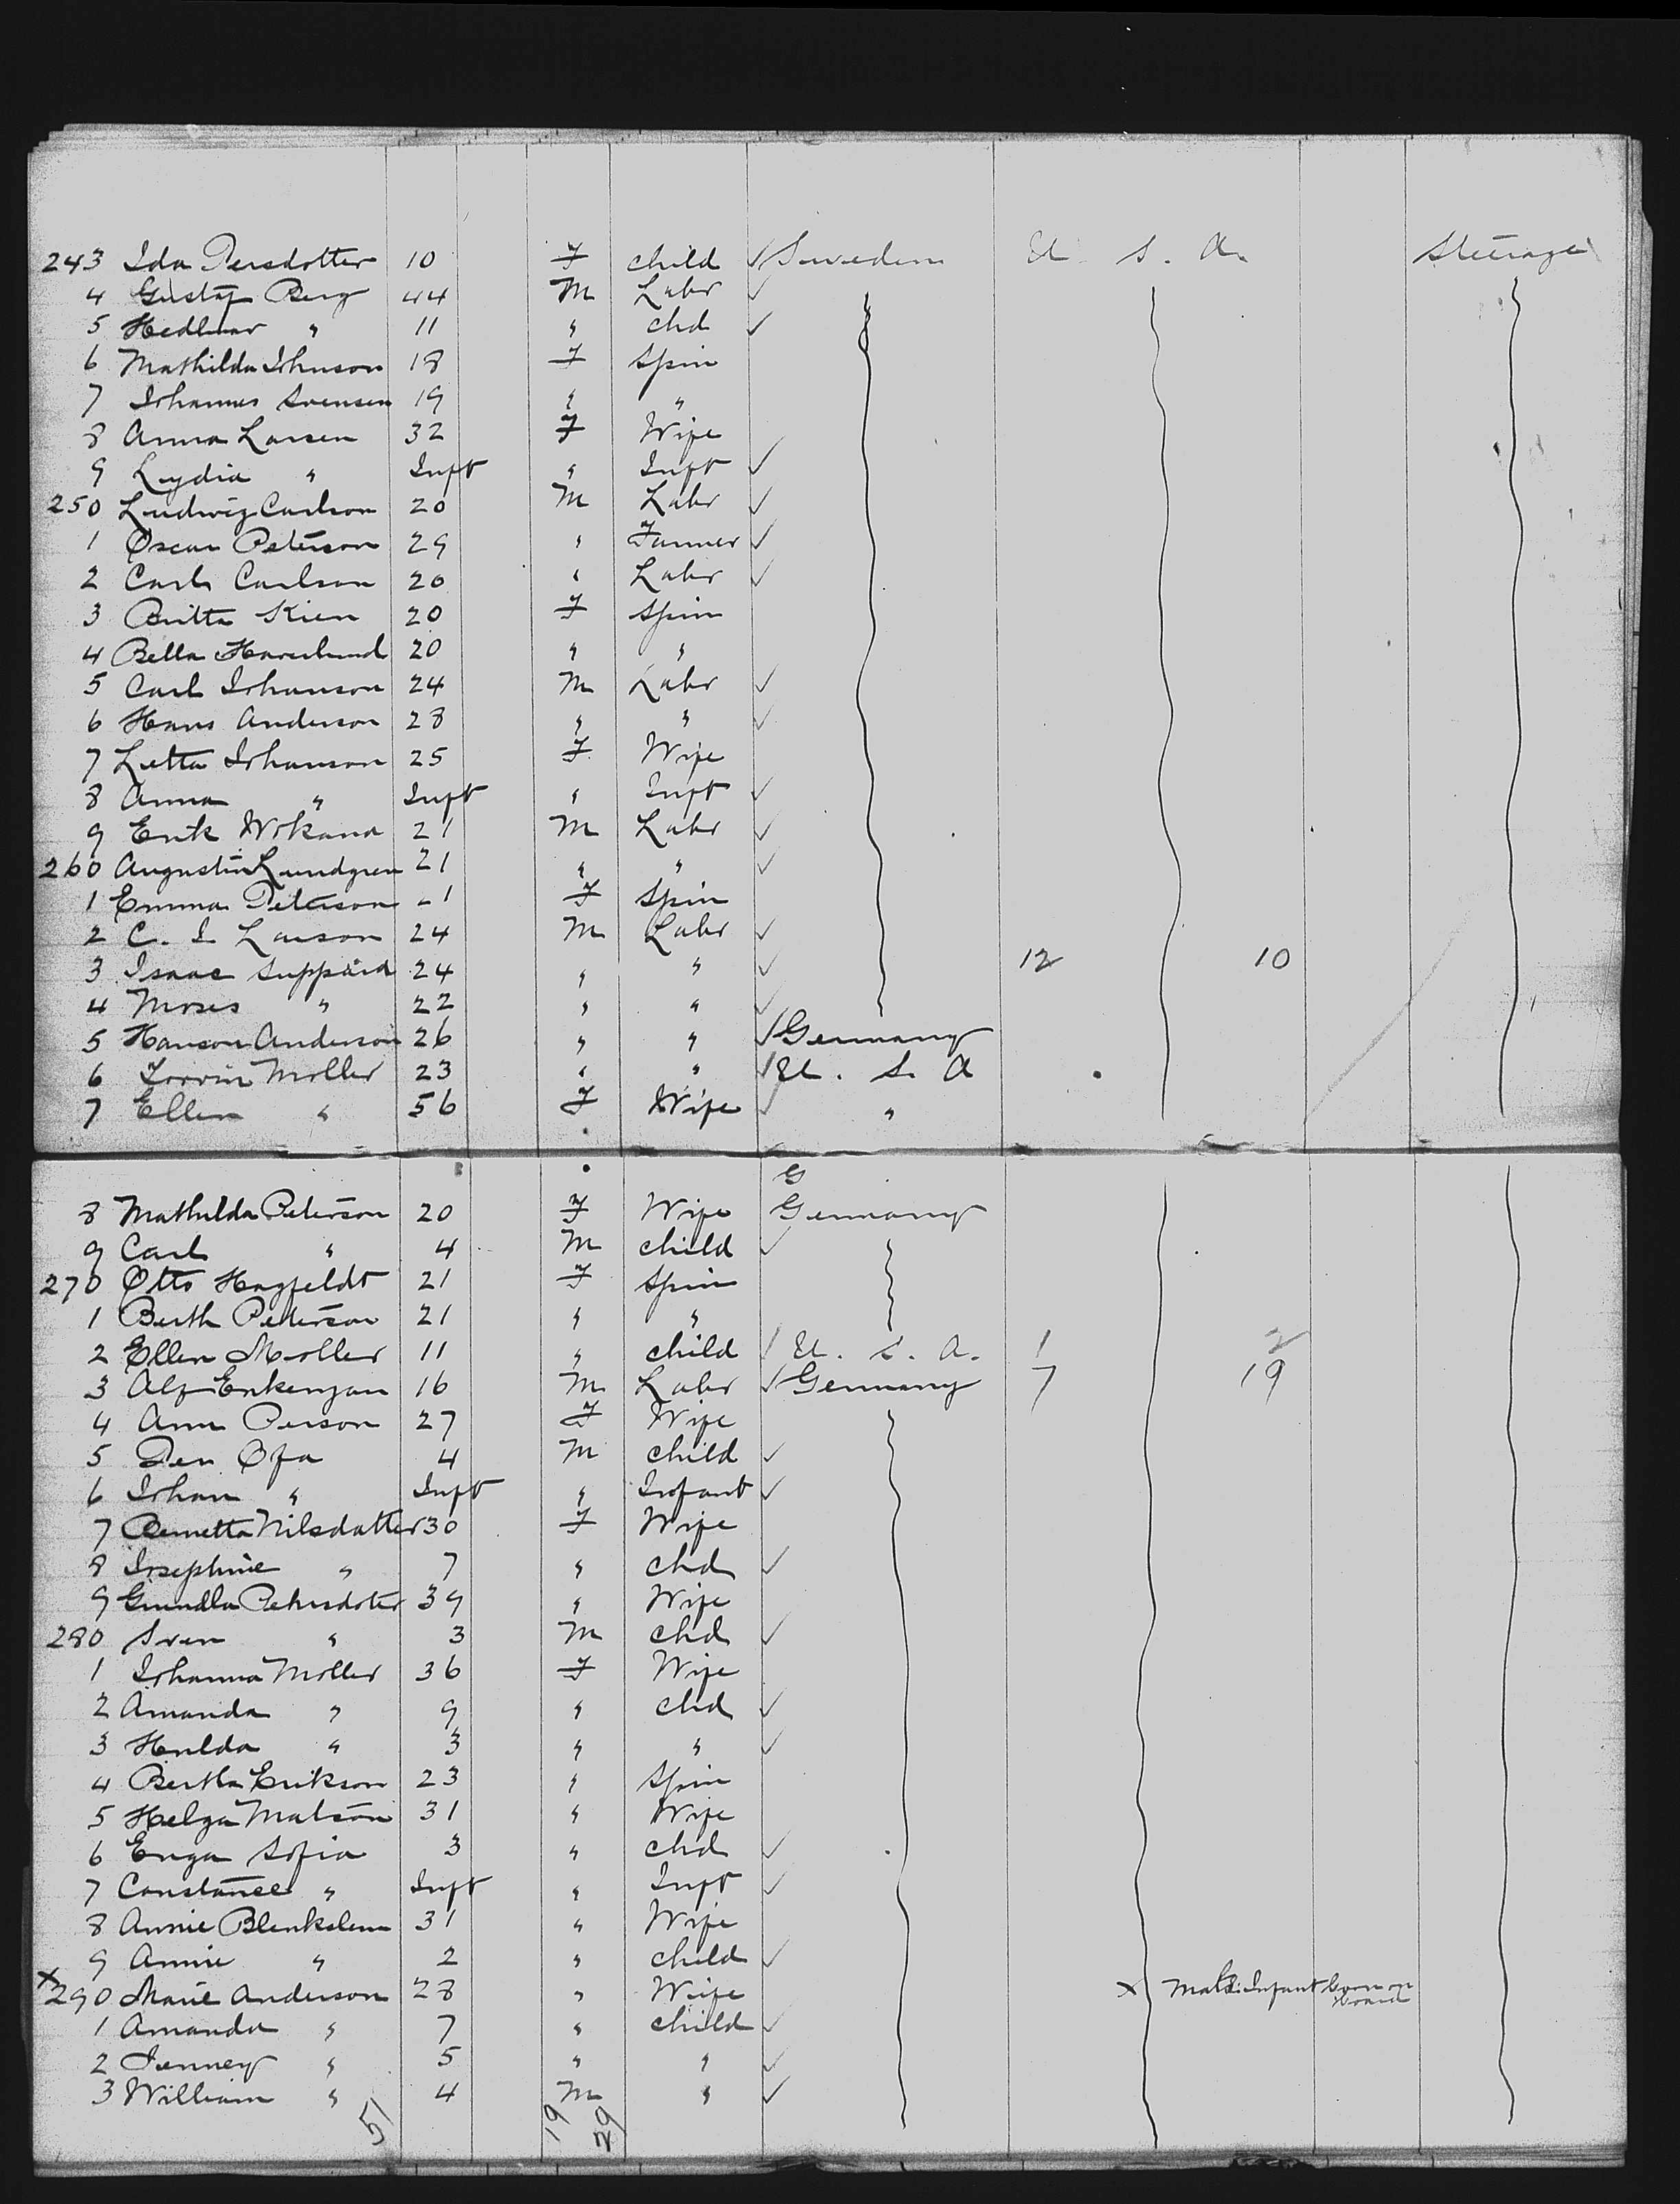 243 Ida Persdotter 10 F child ✓ Sweden U. S. A. Steerage
4 Gustaf Berg 44 M Labr ✓
5 Hedlmar " 11 " chd ✓
6 Mathilda Johnson 18 F Spin
7 Johannes Svensen 19 " "
8 Anna Larsen 32 F Wife
9 Lydia " Inft " Inft ✓
250 Ludwig Carlson 20 M Labr ✓
1 Oscar Peterson 29 " Farmer ✓
2 Carl Carlson 20 " Labr ✓
3 Britta Kien 20 F Spin
4 Bella 20 " "
5 Carl Johanson 24 M Labr ✓
6 Hans Anderson 28 " " ✓
7 Lutta Johanson 25 F Wife
8 Anna " Inft " Inft ✓
9 Erik Wokana 21 M Labr ✓
260 Augustin Lundgren 21 " " ✓
1 Emma Peterson 21 F Spin
2 C. I. Larson 24 M Labr ✓
3 Isaac Suppaid 24 " " ✓ 12 10
4 Moses " 22 " " ✓
5 Hanson Anderson 26 " " ✓ Germany
6 Moller 23 " " ✓ U. S. A
7 Ellen " 56 F Wife ✓ "
G
8 Mathilda Peterson 20 F Wife Germany
9 Carl " 4 M child ✓
270 Otto Hagfeldt 21 F Spin
1 Berth Peterson 21 " "
2 Ellen Moller 11 " child ✓ U. S. A. 1 2
3 Alf Erkenzan 16 M Labr ✓ Germany 7 19
4 Ann Person 27 F Wife
5 Per Ofa 4 M child ✓
6 Johan " Inft " Infant ✓
7 Bernetta Nilsdatter 30 F Wife
8 Josephine " 7 " chd ✓
9 Gunilla Pehrsdoter 39 " Wife
280 Sven " 3 M chd ✓
1 Johanna Moller 36 F Wife
2 Amanda " 9 " chd ✓
3 Hulda " 3 " " ✓
4 Bertha Erikson 23 " Spin
5 Helga Matson 31 " Wife
6 Enga Sofia 3 " chd ✓
7 Constance " Inft " Inft ✓
8 Annie Blenkslem 31 " Wife
9 Annie " 2 " child ✓
x 290 Marie Anderson 28 " Wife x Male Infant born on board
1 Amanda " 7 " child ✓
2 Jenney " 5 " " ✓
3 William " 4 M " ✓
51 19 29